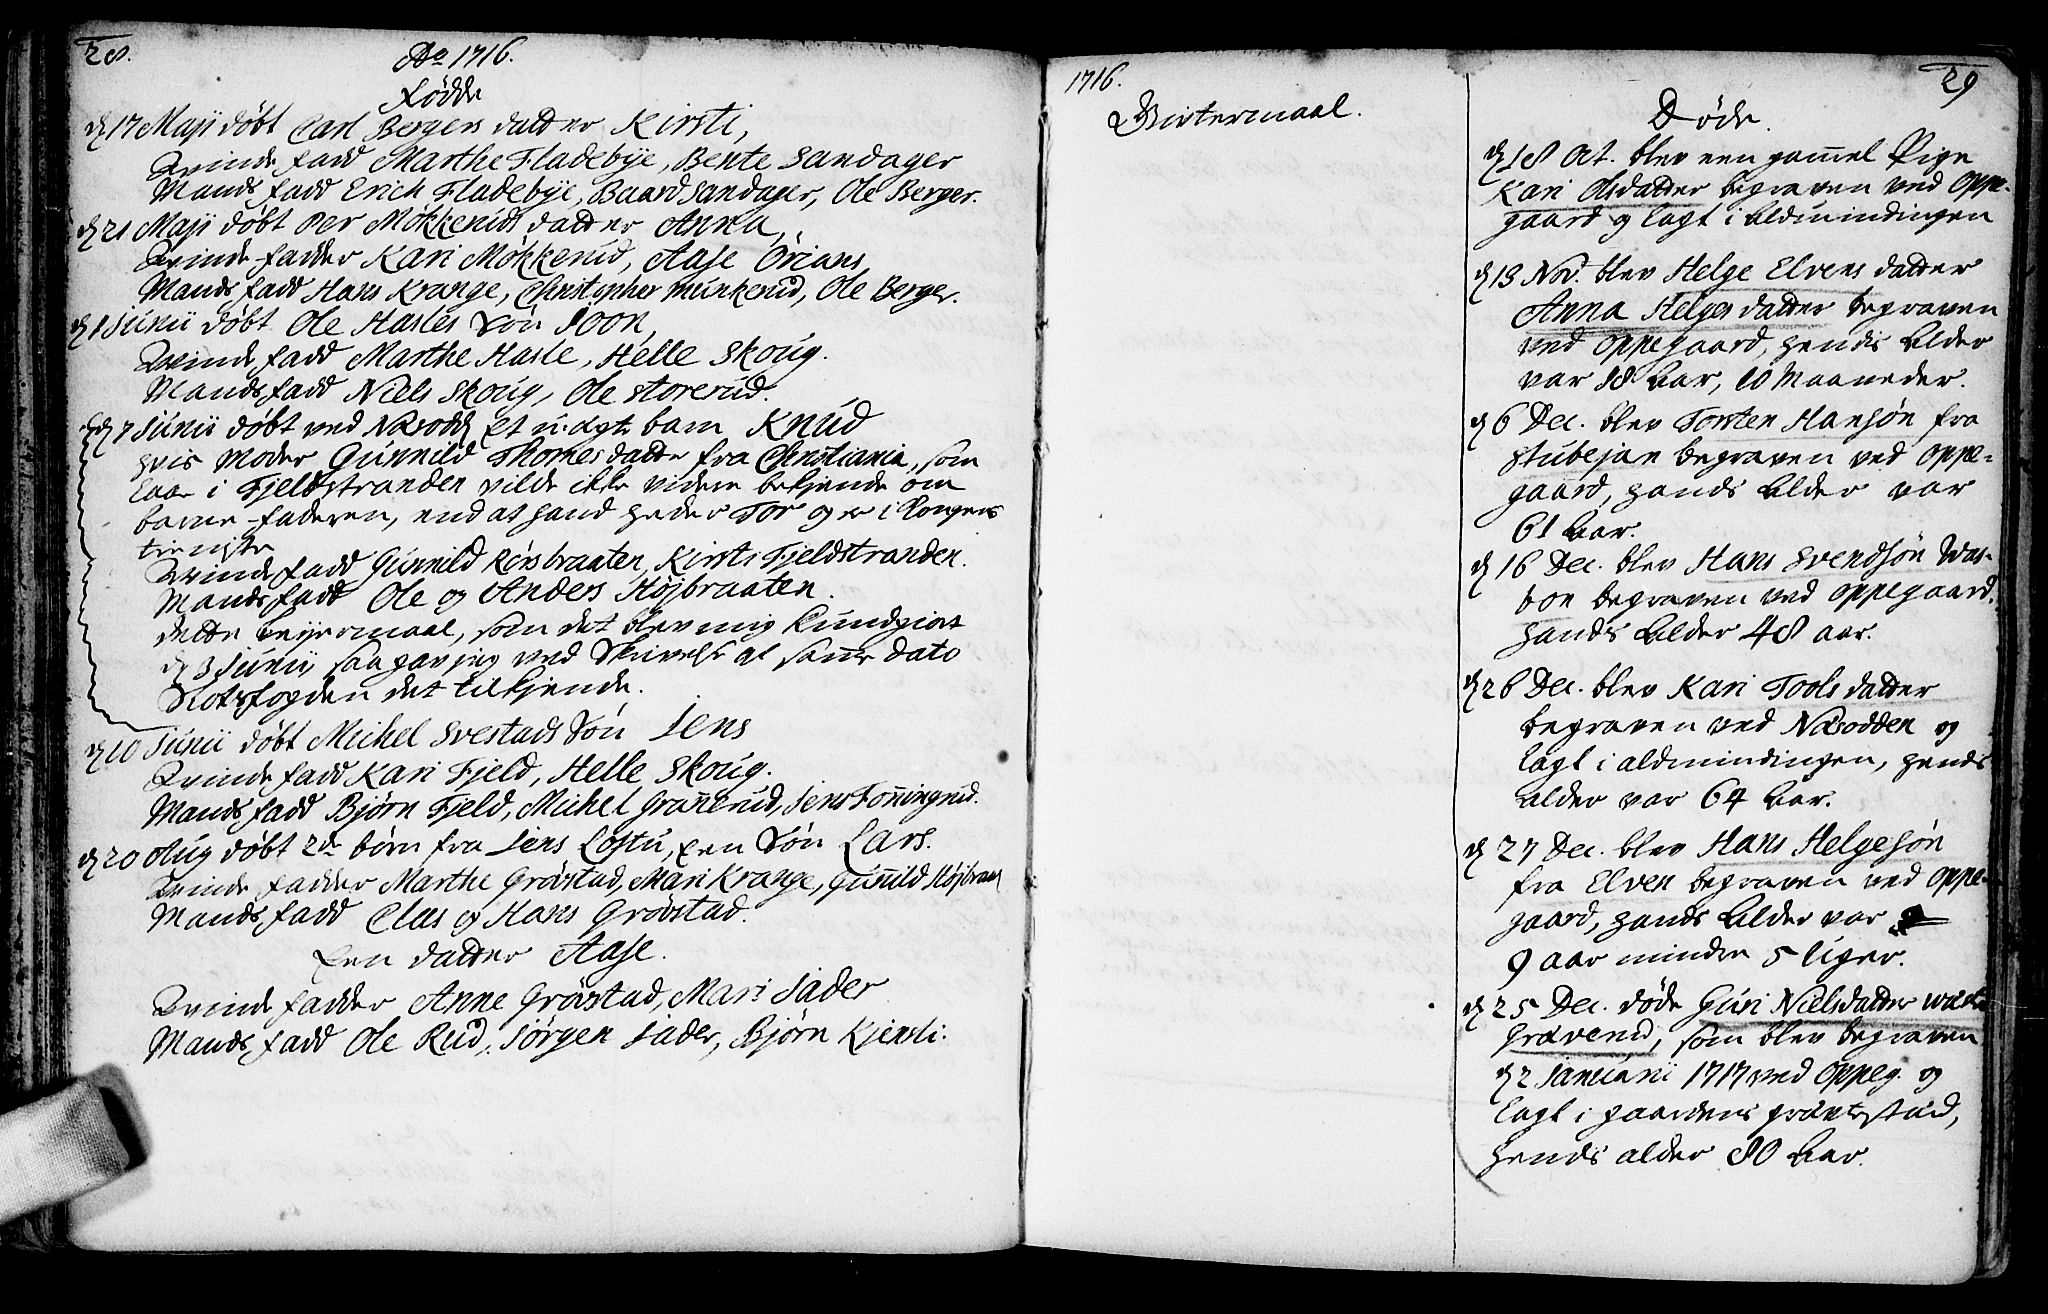 28.
Ao 1716.
Fødde
d 17 Maji døbt Carl Bergers datter Kirsti,
Qvinde fadd Marthe Fladebÿe, Bente Sandager
Mands fadd Erich Fladebÿe, Baard Sandager, Ole Berger.
d 21 Maji døbt Per Mökkeruds datter Anna,
Qvinde-fadder Kari Mökkerud, Aase Örians
Mands fadd Hans Krange, Christopher Munkerud, Ole Berger.
d 1 Junii døbt Ole Hasles Søn Joon,
Qvinde fadd Marthe Hasle, Helle Skoug.
Mands fadd Niels Skoug, Ole Storerud.
d 7 Junii døbt ved Næsodd Et u-ægte barn Knud
hvis Moder Gunnild Thomes datter fra Christiania, som
laae i Fjeldstranden vilde ikke videre bekjende om
barne-faderen, end at hand heder Tor og er i Kongens
tieniste
Qvinde fadd Gunnild Rörsbraaten, Kirsti Fjeldstranden.
Mands fadd Ole og Anders Höjbraaten.
dette leÿermaal, som det blev mig kundgiort
d 3 Junii, saa gav jeg ved Skrivelse at samme dato
Slotsfogden det tilkjende.
d 10 Junii døbt Michel Svestads Søn Jens
Qvinde fadd Kari Fjeld, Helle Skoug.
Mands fadd Björn Fjeld, Michel Granerud, Jens Toñingrud.
d 20 Aug døbt 2de børn fra Jens Toftu, Een Søn Lars.
Qvinde fadder Marthe Gröstad, Mari Krange, Guñild Höjbraat
Mands fadd Clas og Hans Gröstad.
Een datter Aase.
Qvinde fadder Anne Gröstad, Mari Jader
Mands fadd Ole Rud, Jörgen Jader, Björn Kjersti.
1716.
Birtermaal.
29
Døde.
d 18 Oct. blev een gammel Pige
Kari Olsdatter begraven ved Oppe-
gaard og lagt i aldmindingen
d 13 Nov. blev Helge Elvens datter
Anna Helges datter begraven
ved Oppegaard, hendis Alder
var 18 Aar, 10 Maaneder.
d 6 Dec. blev Torsten Hansøn fra
Stubejan begraven ved Oppe-
gaard, hands Alder var
61 Aar.
d 16 Dec. blev Hans Svendsön Was-
boe begraven ved Oppegaard,
hands Alder 48 aar.
d 26 Dec. blev Kari Tools datter
begraven ved Næsodden og
lagt i aldmindingen, hends
Alder var 64 Aar.
d 27 Dec. blev Hans Helgesön
fra Elven begraven ved Oppe-
gaard, hands Alder var
9 aar mindre 5 Uger.
d 25 Dec. døde Guri Nielsdatter
Gräverud, som blev begraven
d 2 Januarii 1717 ved Oppeg. og
lagt i gaardens grävested,
hends alder 80 Aar.